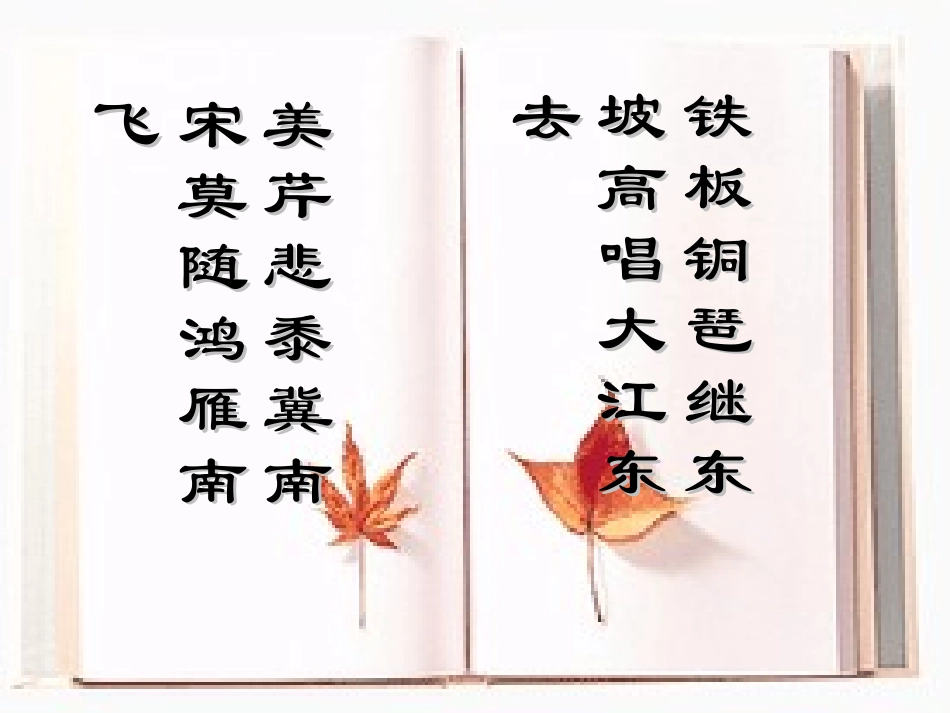 铁板铜琶继东
坡高唱大江东
去
美芹悲黍冀南
宋莫随鸿雁南
飞